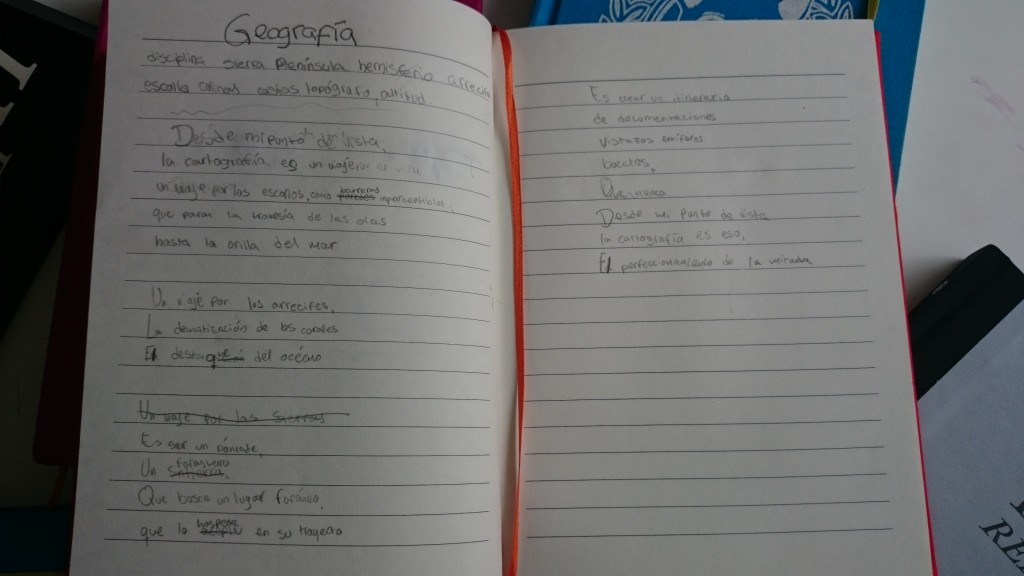 Geografía
disciplina sierra Península hemisferio arrecife
escollo colinas costas topógrafo, altitud
Desde mi punto de vista,
la cartografía es un viaje
un viaje por los escollos, como barreras imperceptibles,
que paran la travesía de las olas
hasta la orilla del mar
Un viaje por los arrecifes,
La climatización de los corales
El destaque del océano
Un viaje por las sierras
Es ser un
Un forastero
Que busca un lugar foráneo,
que lo hospede en su trayecto
Es crear un itinerario
de documentaciones
vistazos
Que nunca
Desde mi punto de vista
la cartografía es eso,
El perfeccionamiento de la mirada
RE